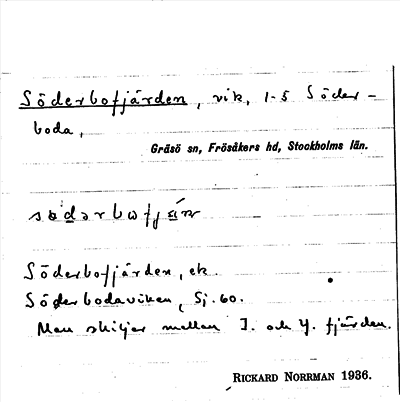 Söderbofjärden, vik, 1-5 Söder-
boda,
Gräsö sn, Frösåkers hd, Stockholms län.
Söderbofjärden, ek.
Söderbodaviken, Sj. 60.
Man skiljer mellan I. och Y. fjärden.
RICKARD NORRMAN 1936.